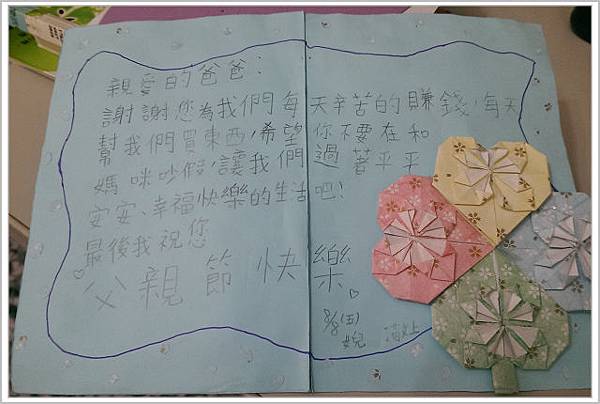 親愛的爸爸：
謝謝您為我們每天辛苦的賺錢，每天
幫我們買東西，希望你不要在和
媽咪吵假，讓我們過著平平
安安、幸福快樂的生活吧！
最後我祝您
父親節快樂
8/8(五)
女兒 上